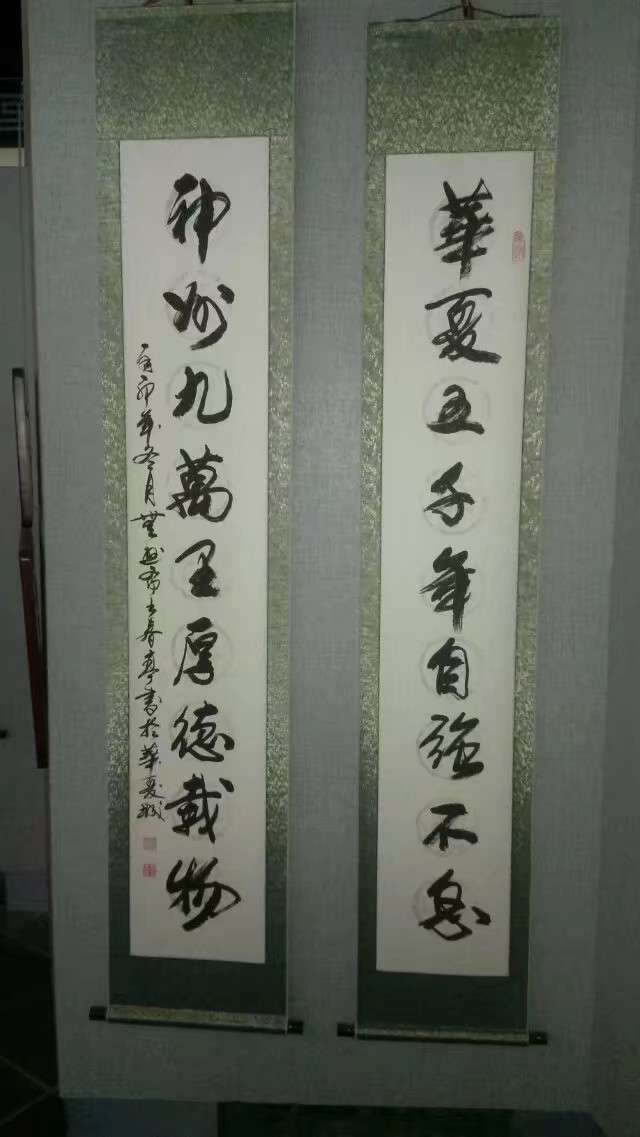 華夏五千年自強不息
神州九萬里厚德載物
癸卯年冬月 書於華夏城